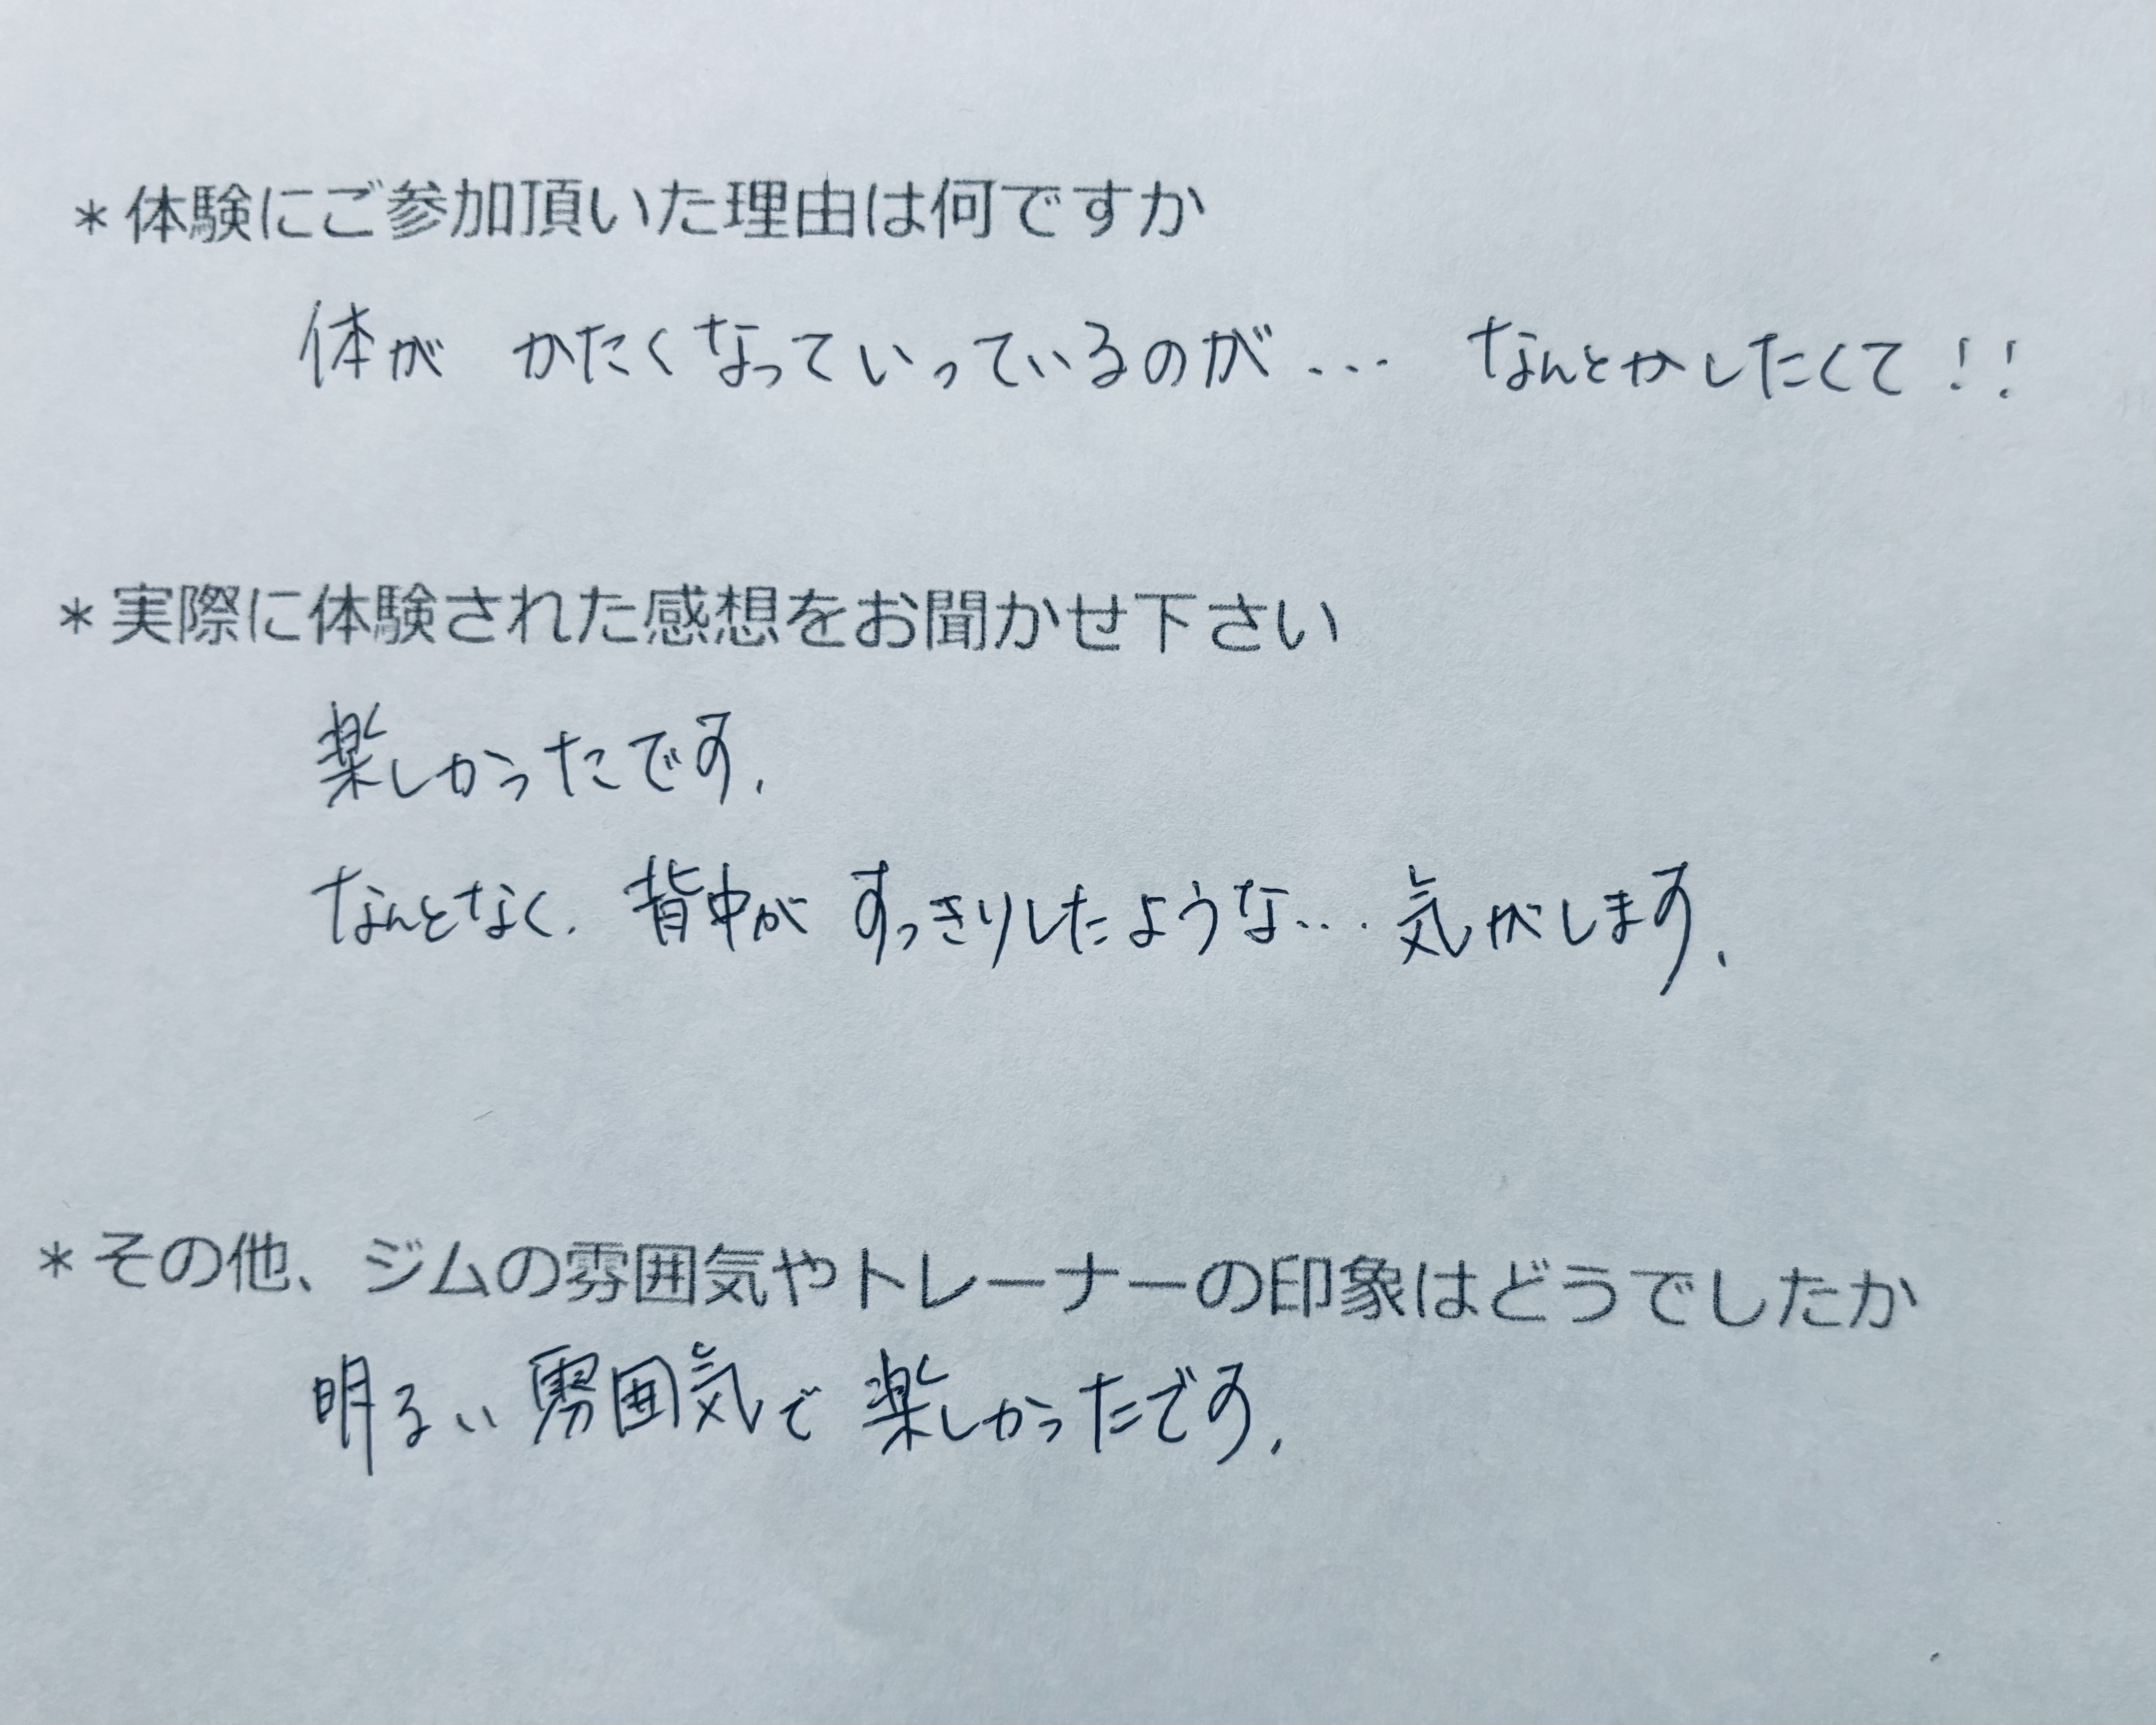 *体験にご参加頂いた理由は何ですか
体が かたくなっていっているのが... なんとかしたくて!!
*実際に体験された感想をお聞かせ下さい
楽しかったです.
なんとなく. 背中が すっきりしたような... 気がします.
*その他、ジムの雰囲気やトレーナーの印象はどうでしたか
明るい雰囲気で 楽しかったです.